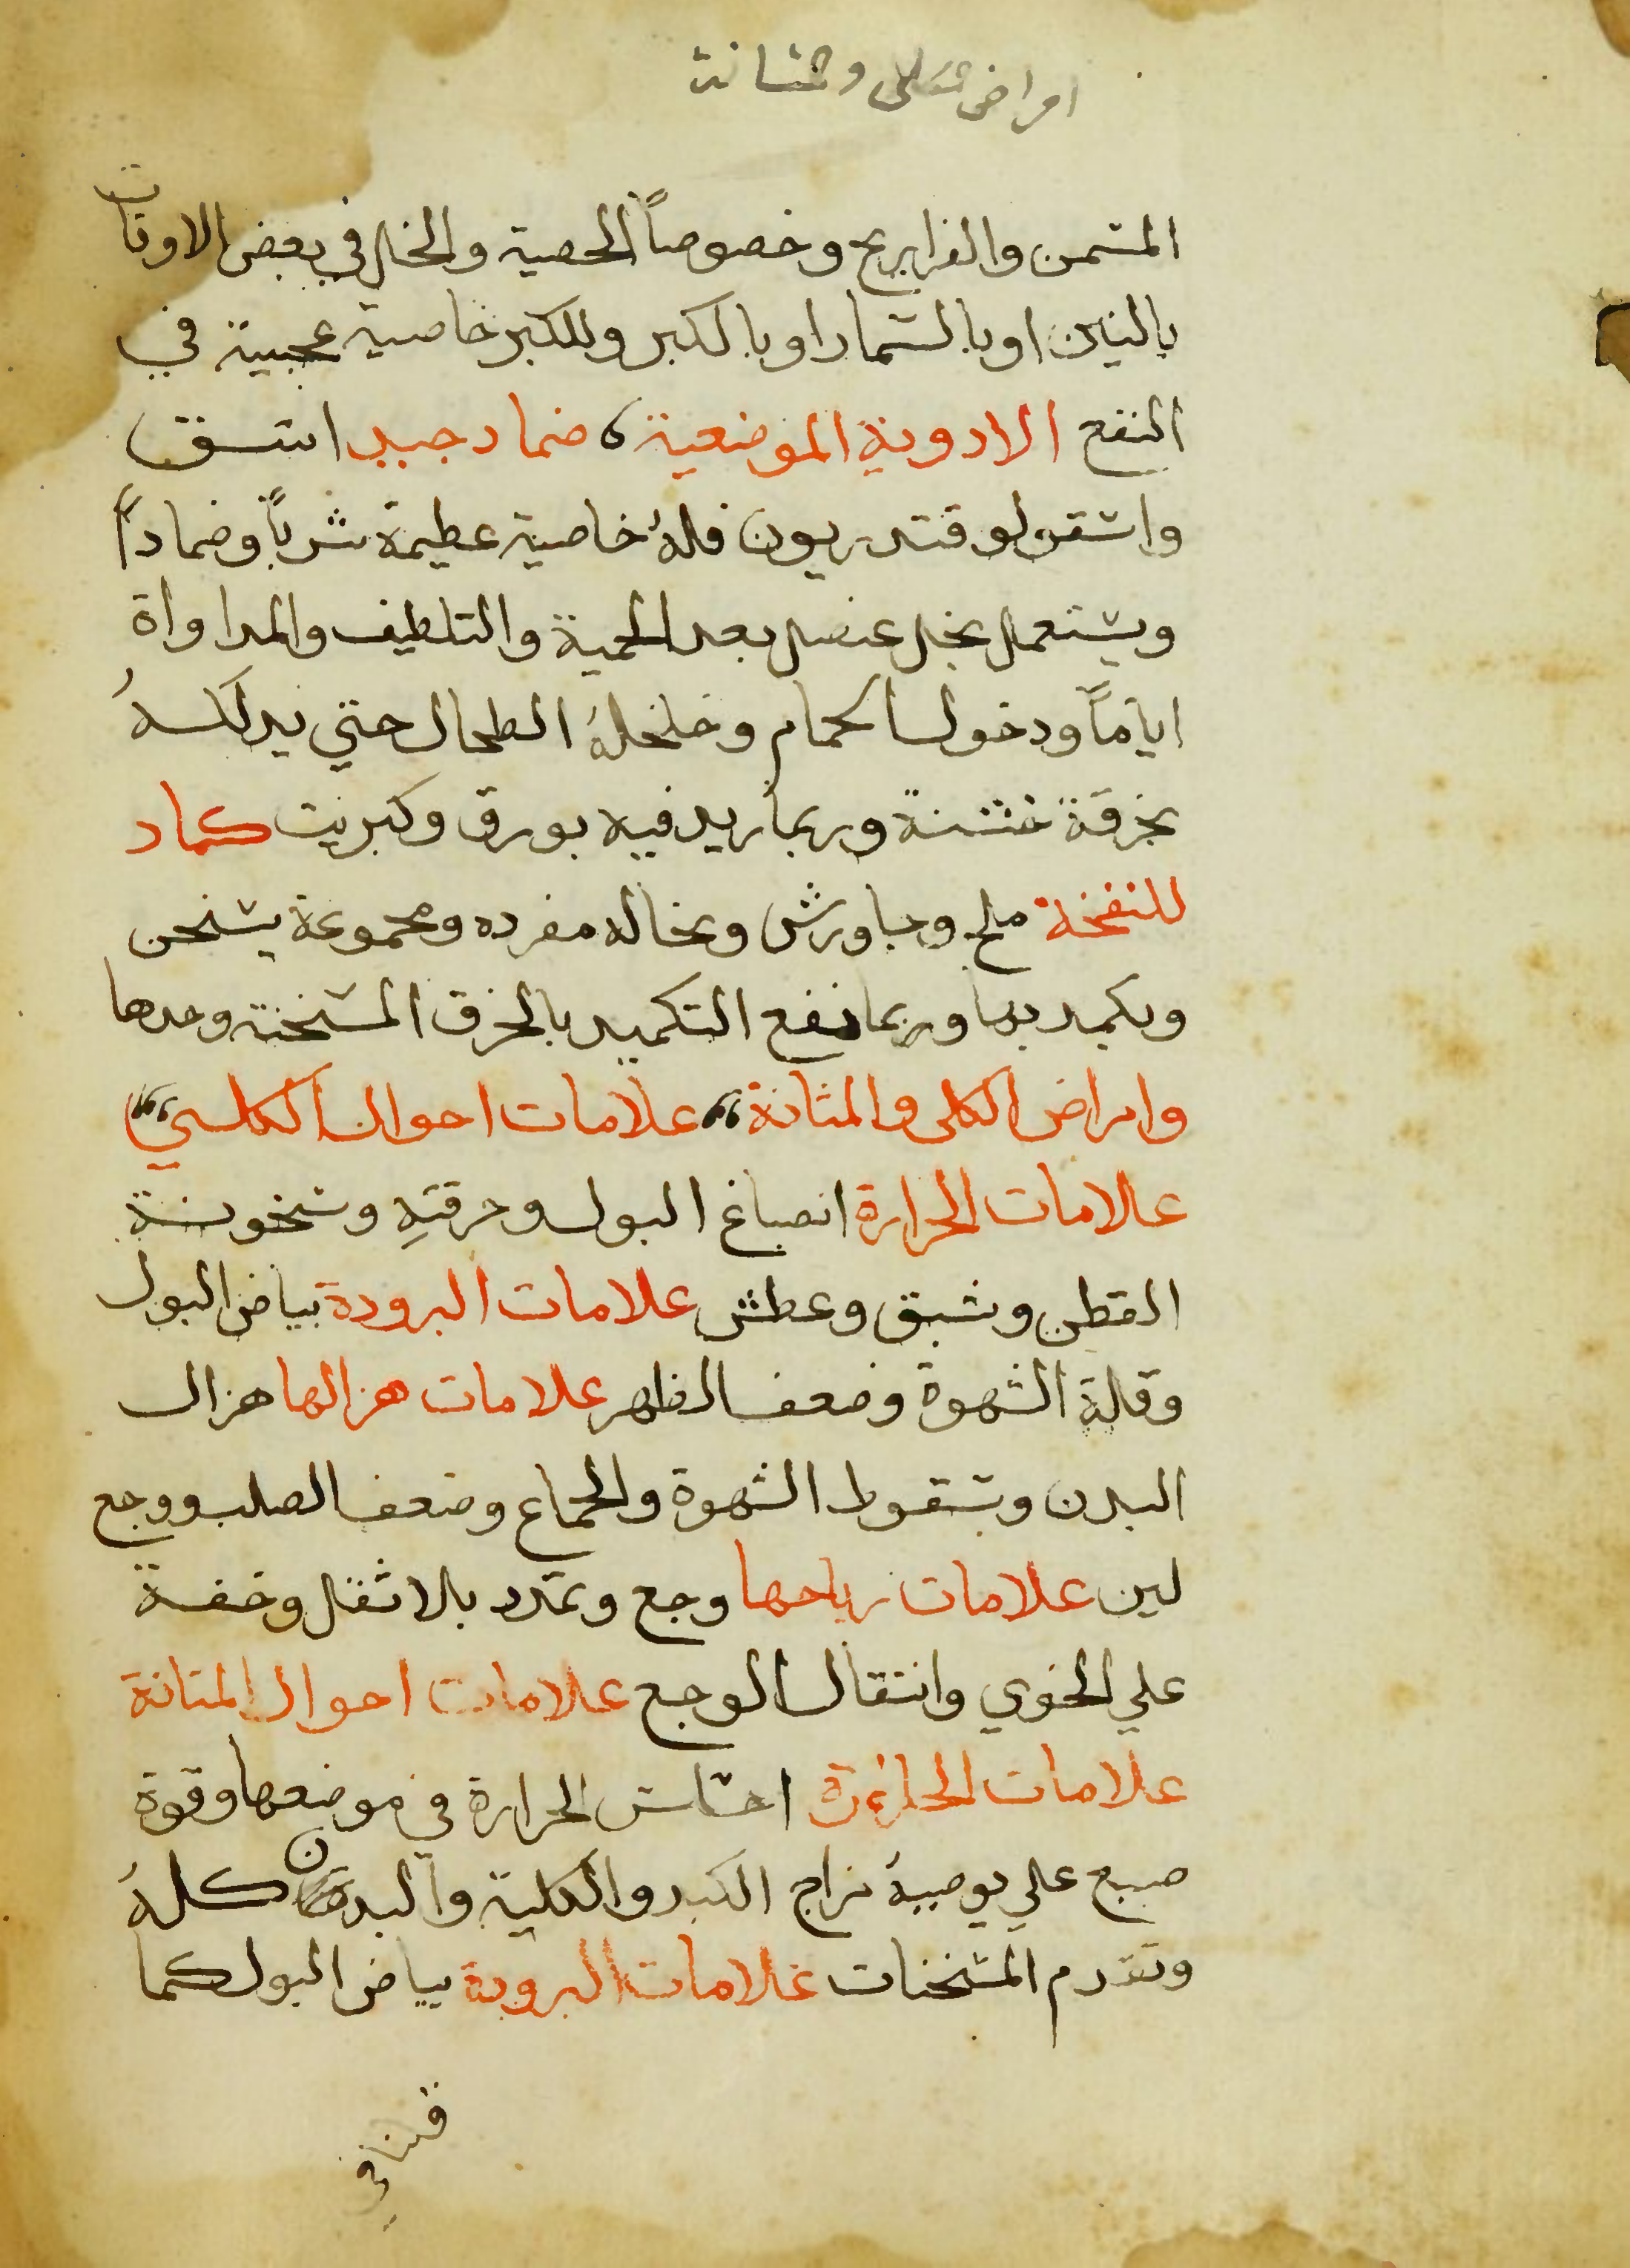 امراض الكلى و المثانة
المسمن والفراريج وخصوصاً الخصية والخل في بعض الاوقات
بالتين اوبالشمار اوبالكبر وللكبر خاصية عجيبة في
النفع الادوية الموضعية ، ضماد جيد اشق
واسقولوقندريون فلهُ خاصية عظيمة شرباً وضماداً
ويستعمل بخل عنصل بعد الحمية والتلطيف والمداواة
اياماً ودخول الحمام وخلخلة الطحال حتي يدلكهُ
بخرقة خشنة وربما زيد فيه بورق وكبريت كماد
للنفخة ملح وجاورش ونخاله مفرده ومجموعة يسخن
ويكمد بها وربما نفع التكميد بالخرق المسخنة وحدها
وامراض الكلى والمثانة ،، علامات احوال الكلي ،،
علامات الحرارة انصباغ البول وحرقتهِ وسخونة
القطن وشبق وعطش علامات البرودة بياض البول
وقلة الشهوة وضعف الظهر علامات هزالها هزال
البدن وسقوط الشهوة والجماع وضعف الصلب ووجع
لين علامات رياحها وجع وتمدد بلا ثقل وخفة
علي الخوي وانتقال الوجع علامات احوال المثانة
علامات الحرارة احساس الحرارة في موضعها وقوة
صبغ علي يوجبهُ مزاج الكبد والكلية والبدن كلهُ
وتقدم المسخنات علامات البرودة بياض البول كما
قلنا في